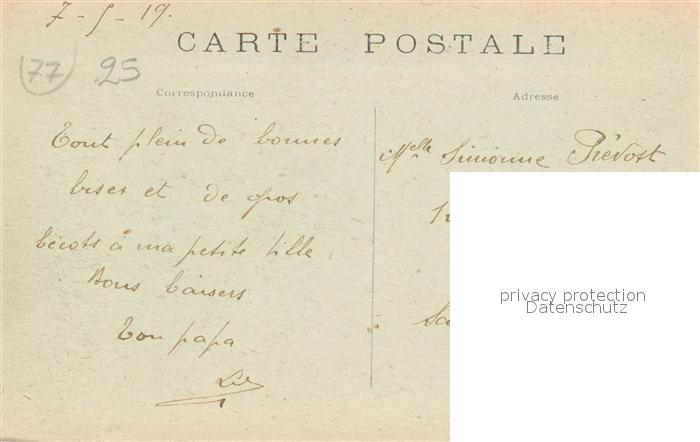 7-5-19.
CARTE POSTALE
77 25
Correspondance
Adresse
Tout plein de bonnes
bises et de gros
bécots à ma petite fille
Bons baisers
Ton papa
Melle Simonne Prévost
privacy protection
Datenschutz